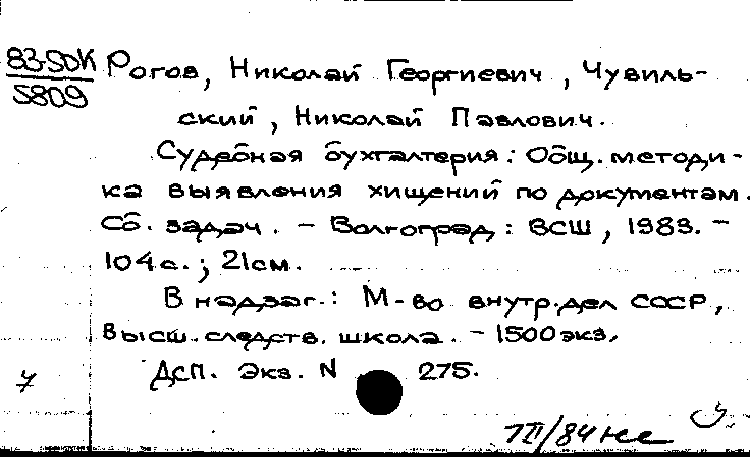 83-5DK Рогов, Николай Георгиевич, Чувиль-
5809
ский, Николай Павлович.
Судебная бухгалтерия: Общ. методи-
ка выявления хищений по документам.
Сб. задач. - Волгоград: ВСШ, 1983. -
104 с.; 21 см.
В надзаг.: М-во внутр. дел СССР,
Высш. следств. школа. - 1500 экз.
7 Дсп. Экз. N 275.